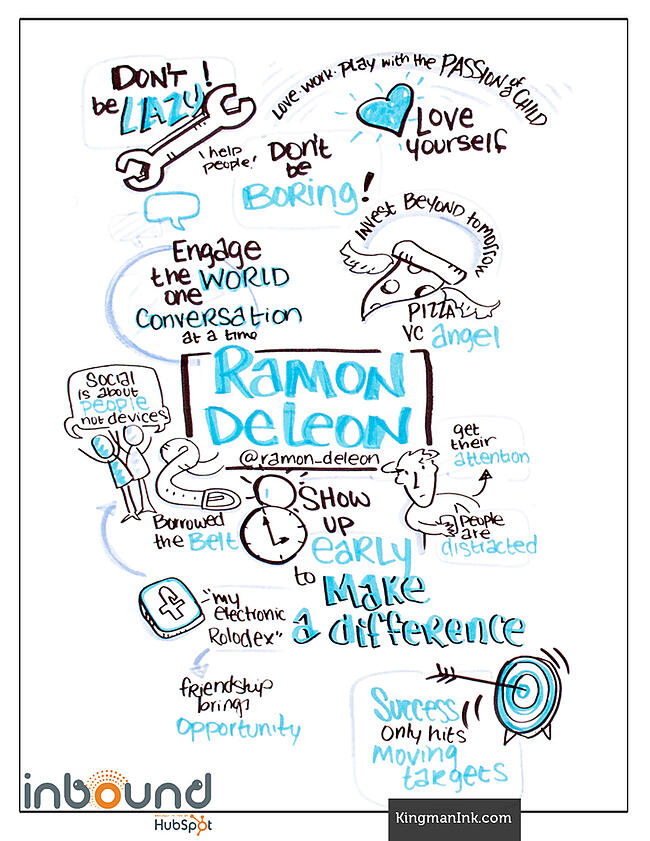 DON'T!
be LAZY
Love·work·Play with the PASSION of a CHILD
Love
yourself
I help
people!
DON'T
be
BORING!
INVEST BEYOND tomorrow
PIZZA
VC angel
Engage
the WORLD
one
Conversation
at a time
RAMON
DELEON
@ramon_deleon
Social
is about
people
not devices
Borrowed
the Belt
get
their
attention
People
are
distracted
SHOW
UP
early
to Make
a difference
f
"my
electronic
Rolodex"
friendship
brings
Opportunity
Success
Only hits
Moving
targets
inbound
HubSpot
KingmanInk.com